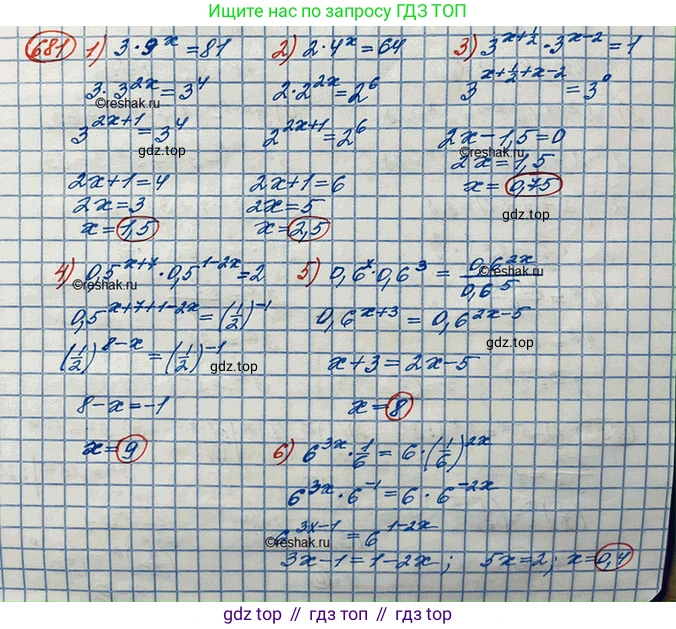 Ищите нас по запросу ГДЗ ТОП
681 1) 3·9^x=81
3·3^{2x}=3^4
©reshak.ru
3^{2x+1}=3^4
gdz.top
2x+1=4
2x=3
x=1,5
2) 2·4^x=64
2·2^{2x}=2^6
2^{2x+1}=2^6
2x+1=6
2x=5
x=2,5
3) 3^{x+1/2}·3^{x-2}=1
3^{x+1/2+x-2}=3^0
2x-1,5=0
©reshak.ru
2x=1,5
x=0,75
gdz.top
4) 0,5^{x+7}·0,5^{1-2x}=2
©reshak.ru
0,5^{x+7+1-2x}=(1/2)^{-1}
(1/2)^{8-x}=(1/2)^{-1}
gdz.top
8-x=-1
x=9
5) 0,6^x·0,6^3=0,6^{2x}/0,6^5
©reshak.ru
0,6^{x+3}=0,6^{2x-5}
gdz.top
x+3=2x-5
x=8
6) 6^{3x}·1/6=6·(1/6)^{2x}
6^{3x}·6^{-1}=6·6^{-2x}
6^{3x-1}=6^{1-2x}
©reshak.ru
gdz.top
3x-1=1-2x; 5x=2; x=0,4
gdz.top // гдз топ // gdz.top